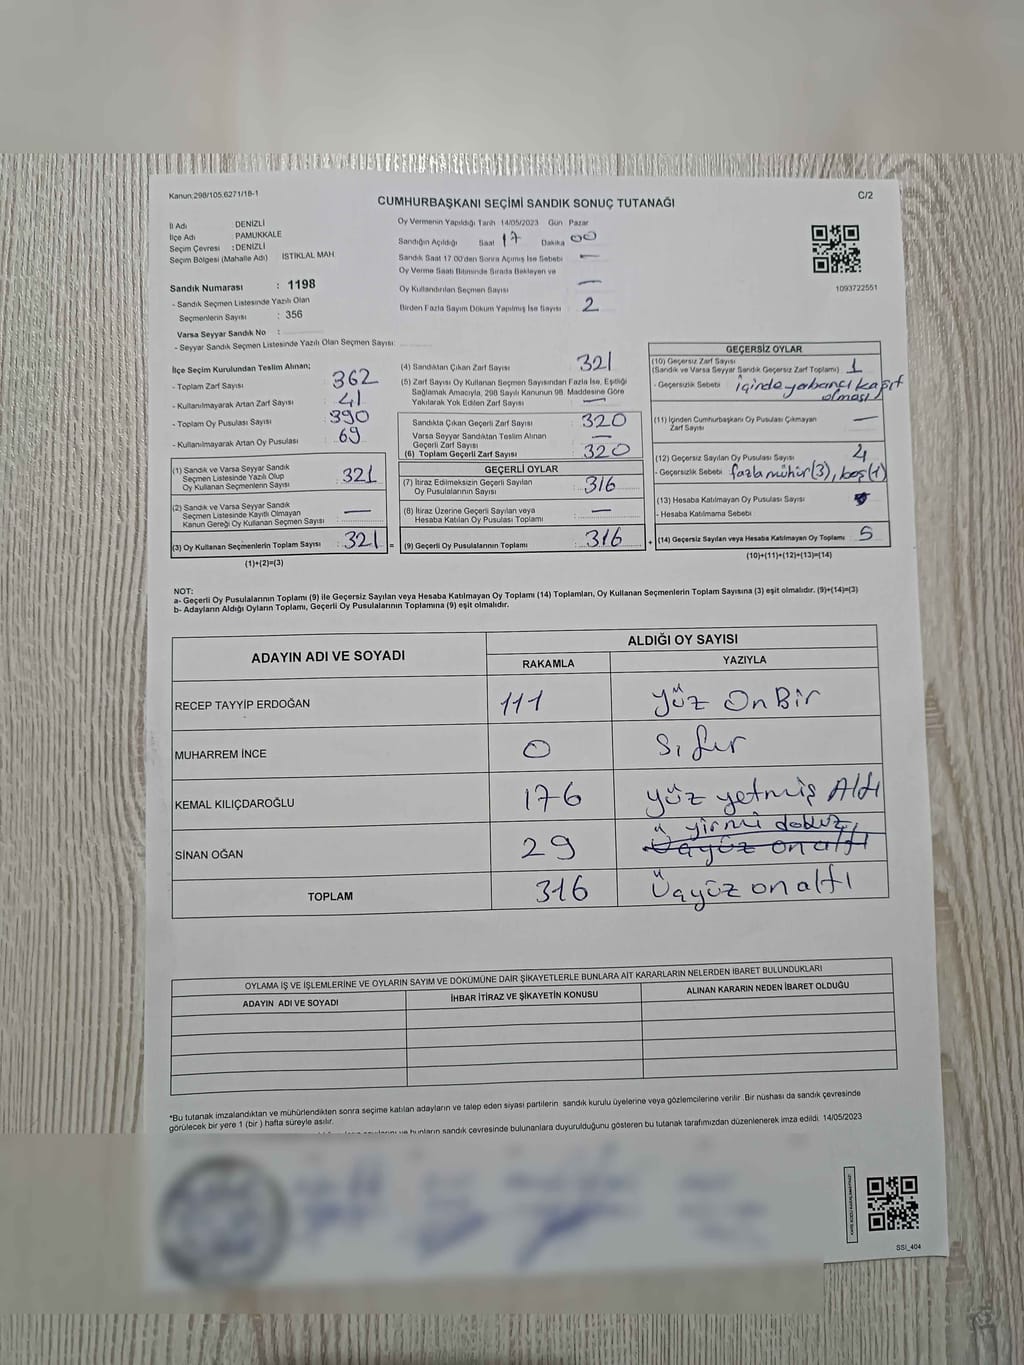 Kanun:298/105.6271/18-1
C/2
CUMHURBAŞKANI SEÇİMİ SANDIK SONUÇ TUTANAĞI
İl Adı DENİZLİ
İlçe Adı PAMUKKALE
Seçim Çevresi : DENİZLİ
Seçim Bölgesi (Mahalle Adı) ISTIKLAL MAH.
Sandık Numarası : 1198
- Sandık Seçmen Listesinde Yazılı Olan
Seçmenlerin Sayısı : 356
Varsa Seyyar Sandık No :
- Seyyar Sandık Seçmen Listesinde Yazılı Olan Seçmen Sayısı:
Oy Vermenin Yapıldığı Tarih 14/05/2023 Gün Pazar
Sandığın Açıldığı Saat 17 Dakika 00
Sandık Saat 17.00'den Sonra Açımış İse Sebebi —
Oy Verme Saati Bitiminde Sırada Bekleyen ve
Oy Kullandırılan Seçmen Sayısı —
Birden Fazla Sayım Döküm Yapılmış İse Sayısı 2
1093722551
İlçe Seçim Kurulundan Teslim Alınan;
- Toplam Zarf Sayısı 362
- Kullanılmayarak Artan Zarf Sayısı 41
- Toplam Oy Pusulası Sayısı 390
- Kullanılmayarak Artan Oy Pusulası 69
(1) Sandık ve Varsa Seyyar Sandık
Seçmen Listesinde Yazılı Olup
Oy Kullanan Seçmenlerin Sayısı 321
(2) Sandık ve Varsa Seyyar Sandık
Seçmen Listesinde Kayıtlı Olmayan
Kanun Gereği Oy Kullanan Seçmen Sayısı —
(3) Oy Kullanan Seçmenlerin Toplam Sayısı 321 =
(1)+(2)=(3)
(4) Sandıktan Çıkan Zarf Sayısı 321
(5) Zarf Sayısı Oy Kullanan Seçmen Sayısından Fazla İse, Eşitliği
Sağlamak Amacıyla, 298 Sayılı Kanunun 98. Maddesine Göre
Yakılarak Yok Edilen Zarf Sayısı —
Sandıkta Çıkan Geçerli Zarf Sayısı 320
Varsa Seyyar Sandıktan Teslim Alınan
Geçerli Zarf Sayısı —
(6) Toplam Geçerli Zarf Sayısı 320
GEÇERLİ OYLAR
(7) İtiraz Edilmeksizin Geçerli Sayılan
Oy Pusulalarının Sayısı 316
(8) İtiraz Üzerine Geçerli Sayılan veya
Hesaba Katılan Oy Pusulası Toplamı —
(9) Geçerli Oy Pusulalarının Toplamı 316 +
GEÇERSİZ OYLAR
(10) Geçersiz Zarf Sayısı
(Sandık ve Varsa Seyyar Sandık Geçersiz Zarf Toplamı) 1
- Geçersizlik Sebebi içinde yabancı kağıt
olması
(11) İçinden Cumhurbaşkanı Oy Pusulası Çıkmayan
Zarf Sayısı —
(12) Geçersiz Sayılan Oy Pusulası Sayısı 4
- Geçersizlik Sebebi fazla mühür(3), boş(1)
(13) Hesaba Katılmayan Oy Pusulası Sayısı
- Hesaba Katılmama Sebebi
(14) Geçersiz Sayılan veya Hesaba Katılmayan Oy Toplamı 5
(10)+(11)+(12)+(13)=(14)
NOT:
a- Geçerli Oy Pusulalarının Toplamı (9) ile Geçersiz Sayılan veya Hesaba Katılmayan Oy Toplamı (14) Toplamları, Oy Kullanan Seçmenlerin Toplam Sayısına (3) eşit olmalıdır. (9)+(14)=(3)
b- Adayların Aldığı Oyların Toplamı, Geçerli Oy Pusulalarının Toplamına (9) eşit olmalıdır.
ADAYIN ADI VE SOYADI ALDIĞI OY SAYISI
RAKAMLA YAZIYLA
RECEP TAYYİP ERDOĞAN 111 Yüz On Bir
MUHARREM İNCE 0 Sıfır
KEMAL KILIÇDAROĞLU 176 Yüz yetmiş Altı
yirmi dokuz
SİNAN OĞAN 29 Üçyüz on altı
TOPLAM 316 Üçyüz on altı
OYLAMA İŞ VE İŞLEMLERİNE VE OYLARIN SAYIM VE DÖKÜMÜNE DAİR ŞİKAYETLERLE BUNLARA AİT KARARLARIN NELERDEN İBARET BULUNDUKLARI
ADAYIN ADI VE SOYADI İHBAR İTİRAZ VE ŞİKAYETİN KONUSU ALINAN KARARIN NEDEN İBARET OLDUĞU
*Bu tutanak imzalandıktan ve mühürlendikten sonra seçime katılan adayların ve talep eden siyasi partilerin sandık kurulu üyelerine veya gözlemcilerine verilir. Bir nüshası da sandık çevresinde
görülecek bir yere 1 (bir) hafta süreyle asılır.
bunların sandık çevresinde bulunanlara duyurulduğunu gösteren bu tutanak tarafımızdan düzenlenerek imza edildi. 14/05/2023
SSI_404